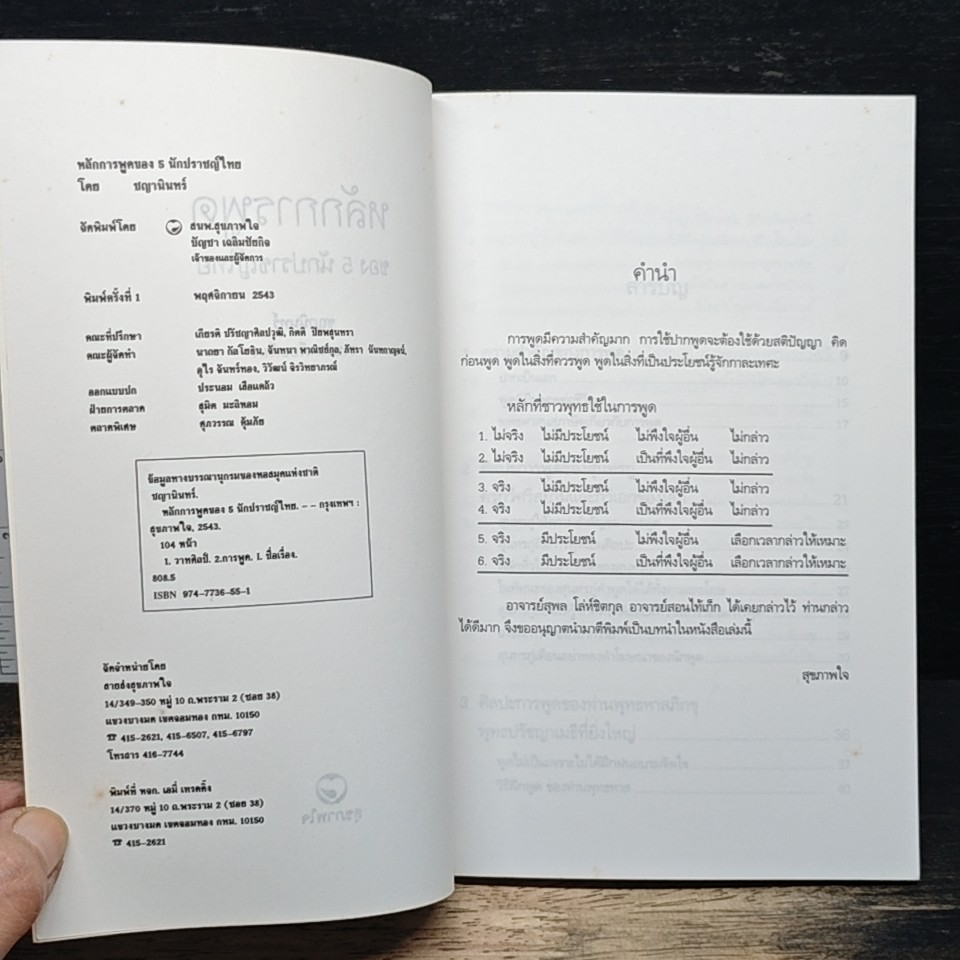 หลักการพูดของ 5 นักปราชญ์ไทย
โดย ชญานินทร์
จัดพิมพ์โดย สนพ.สุขภาพใจ
บัญชา เฉลิมชัยกิจ
เจ้าของและผู้จัดการ
พิมพ์ครั้งที่ 1 พฤศจิกายน 2543
คณะที่ปรึกษา เกียรติ ปรัชญาศิลปวุฒิ, กิตติ ปิยพสุนทรา
คณะผู้จัดทำ นาถยา กัลโยธิน, จันทนา พาณิชย์กุล, ภัทรา จันทกาญจน์,
ดุไร จันทร์ทอง, วิวัฒน์ จิรวิทยาภรณ์
ออกแบบปก ประนอม เสือแดล้ว
ฝ่ายการตลาด สุมิต มะลิหอม
ตลาดพิเศษ ศุภวรรณ คุ้มภัย
ข้อมูลทางบรรณานุกรมของหอสมุดแห่งชาติ
ชญานินทร์.
หลักการพูดของ 5 นักปราชญ์ไทย. -- กรุงเทพฯ :
สุขภาพใจ, 2543.
104 หน้า
1. วาทศิลป์. 2.การพูด. I. ชื่อเรื่อง.
808.5
ISBN 974-7736-55-1
จัดจำหน่ายโดย
สายส่งสุขภาพใจ
14/349-350 หมู่ 10 ถ.พระราม 2 (ซอย 38)
แขวงบางมด เขตจอมทอง กทม. 10150
☎ 415-2621, 415-6507, 415-6797
โทรสาร 416-7744
พิมพ์ที่ หจก. เอมี่ เทรดดิ้ง
14/370 หมู่ 10 ถ.พระราม 2 (ซอย 38)
แขวงบางมด เขตจอมทอง กทม. 10150
☎ 415-2621
คำนำ
การพูดมีความสำคัญมาก การใช้ปากพูดจะต้องใช้ด้วยสติปัญญา คิด
ก่อนพูด พูดในสิ่งที่ควรพูด พูดในสิ่งที่เป็นประโยชน์รู้จักกาละเทศะ
หลักที่ชาวพุทธใช้ในการพูด
1. ไม่จริง ไม่มีประโยชน์ ไม่พึงใจผู้อื่น ไม่กล่าว
2. ไม่จริง ไม่มีประโยชน์ เป็นที่พึงใจผู้อื่น ไม่กล่าว
3. จริง ไม่มีประโยชน์ ไม่พึงใจผู้อื่น ไม่กล่าว
4. จริง ไม่มีประโยชน์ เป็นที่พึงใจผู้อื่น ไม่กล่าว
5. จริง มีประโยชน์ ไม่พึงใจผู้อื่น เลือกเวลากล่าวให้เหมาะ
6. จริง มีประโยชน์ เป็นที่พึงใจผู้อื่น เลือกเวลากล่าวให้เหมาะ
อาจารย์สุพล โล่ห์ชิตกุล อาจารย์สอนไท้เก็ก ได้เคยกล่าวไว้ ท่านกล่าว
ได้ดีมาก จึงขออนุญาตนำมาตีพิมพ์เป็นบทนำในหนังสือเล่มนี้
สุขภาพใจ